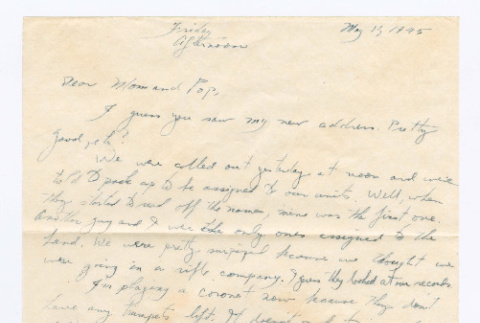 Friday
Afternoon
May 11, 1945
Dear Mom and Pop,
I guess you saw my new address. Pretty
good, eh?
We were called out yesterday at noon and were
told to pack up to be assigned to our units. Well, when
they started to read off the names, mine was the first one.
Another guy and I were the only ones assigned to the
band. We were pretty surprised because we thought we
were going in a rifle company. I guess they looked at our records
I'm playing a coronet now because they don't
have any trumpets left. It doesn't